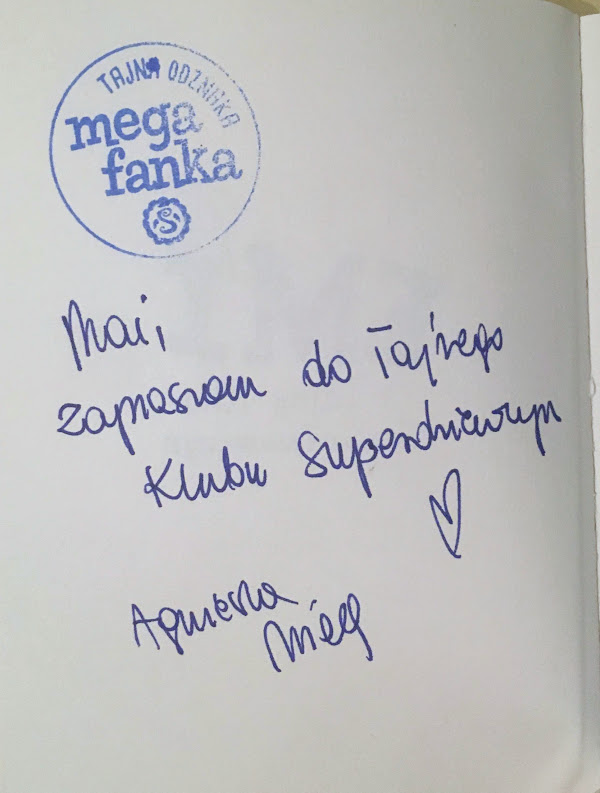 TAJNA ODZNAKA
mega
fanka
S
Mai,
zapraszam do Tajnego
Klubu Superdziewczyn
Agnieszka
Mielech